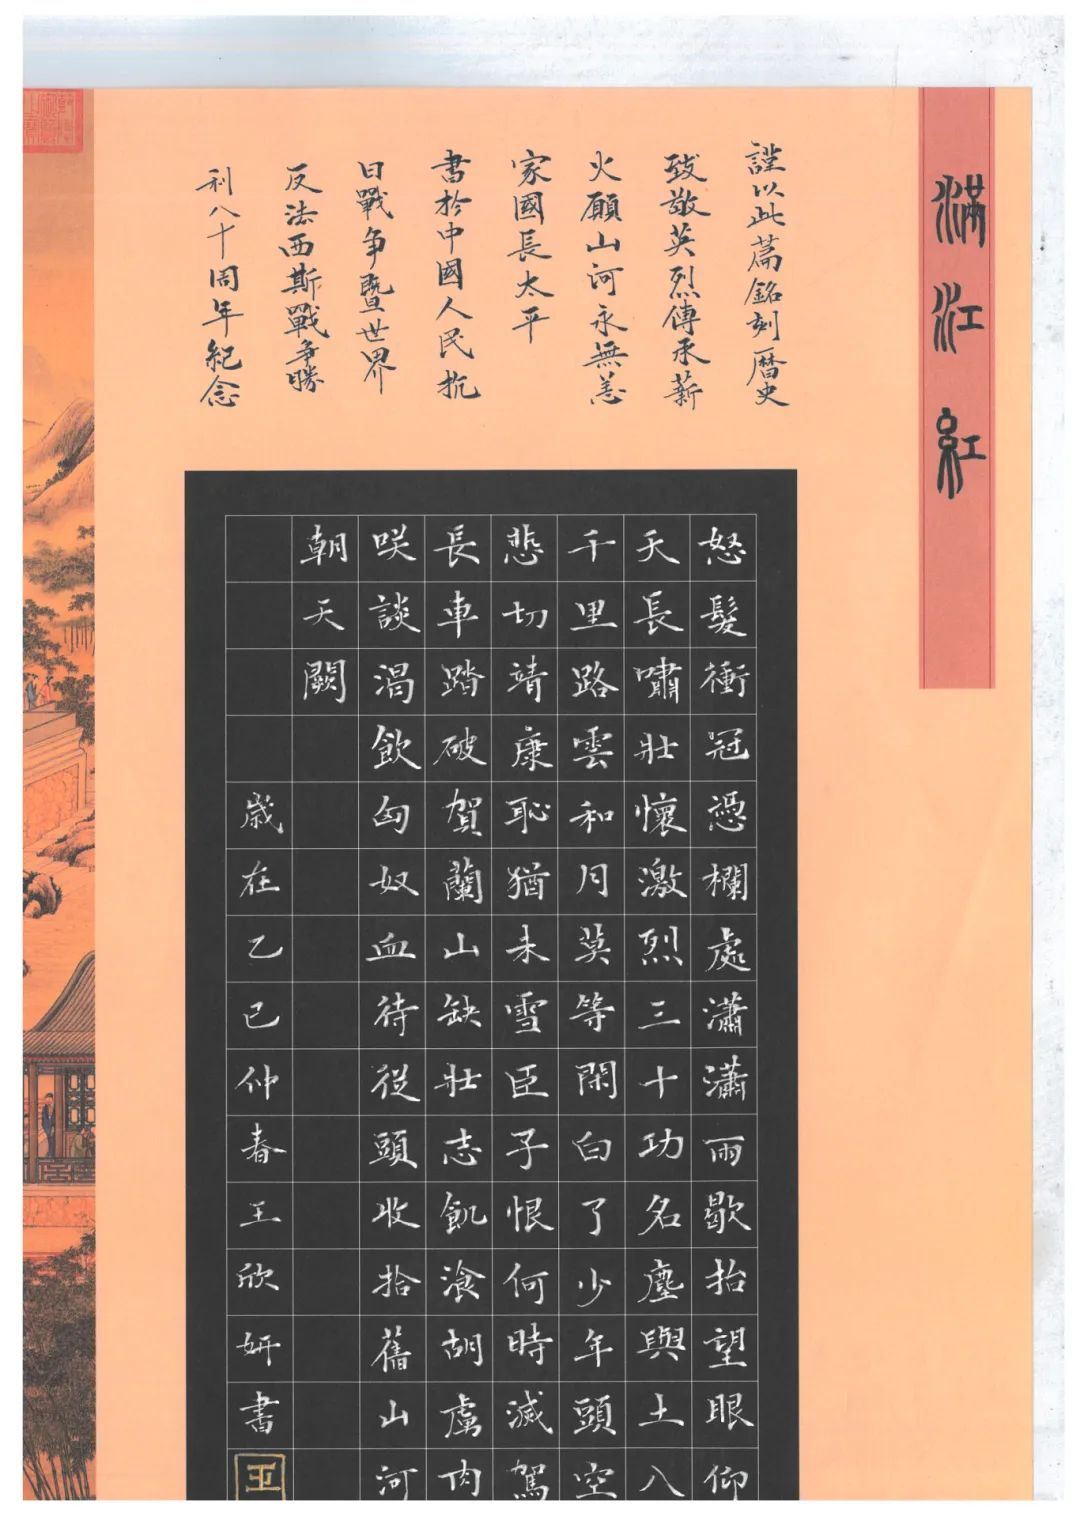 滿江紅
謹以此篇銘刻曆史
致敬英烈傳承薪
火願山河永無恙
家國長太平
書於中國人民抗
日戰争暨世界
反法西斯戰争勝
利八十周年紀念
怒髮衝冠憑欄處瀟瀟雨歇抬望眼仰
天長嘯壯懷激烈三十功名塵與土八
千里路雲和月莫等閑白了少年頭空
悲切靖康恥猶未雪臣子恨何時滅駕
長車踏破賀蘭山缺壯志飢湌胡虜肉
咲談渴飲匈奴血待從頭收拾舊山河
朝天闕
歲在乙巳仲春王欣妍書
王